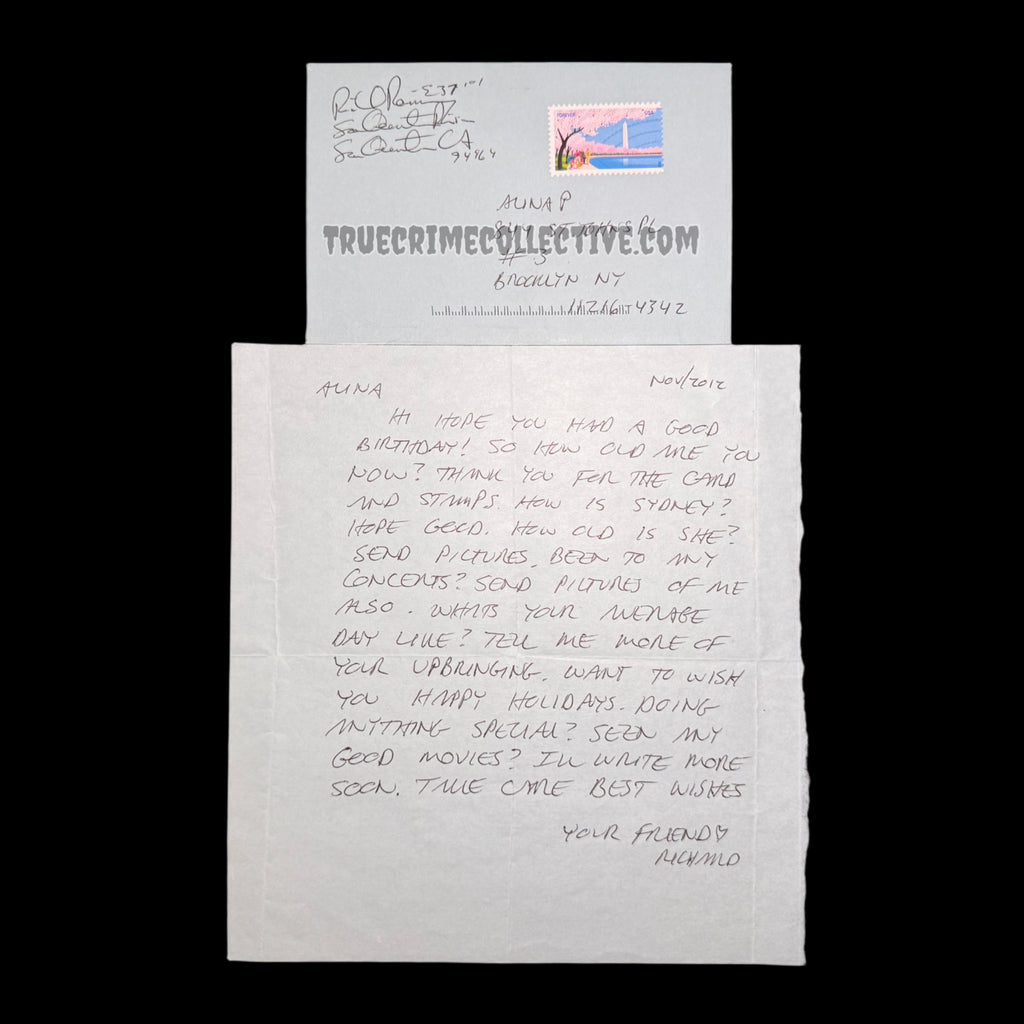 Richard Ramirez - E37101
San Quentin Prison
San Quentin CA
94964
FOREVER USA
ALINA P
844 ST JOHNS PL
TRUECRIMECOLLECTIVE.COM
# 3
BROOKLYN NY
11216 4342
ALINA NOV/2012
HI HOPE YOU HAD A GOOD
BIRTHDAY! SO HOW OLD ARE YOU
NOW? THANK YOU FOR THE CARD
AND STAMPS. HOW IS SYDNEY?
HOPE GOOD. HOW OLD IS SHE?
SEND PICTURES. BEEN TO ANY
CONCERTS? SEND PICTURES OF ME
ALSO. WHATS YOUR AVERAGE
DAY LIKE? TELL ME MORE OF
YOUR UPBRINGING. WANT TO WISH
YOU HAPPY HOLIDAYS. DOING
ANYTHING SPECIAL? SEEN ANY
GOOD MOVIES? ILL WRITE MORE
SOON. TAKE CARE BEST WISHES
YOUR FRIEND♡
RICHARD